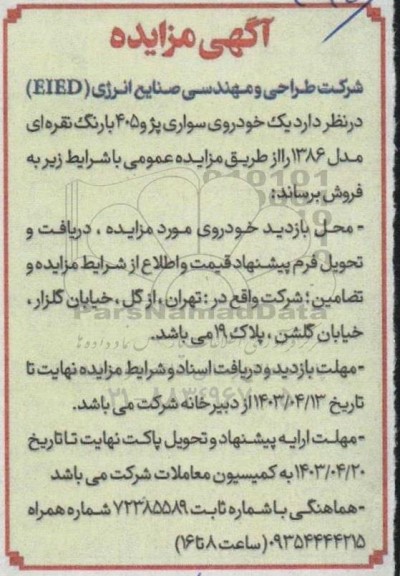 آگهی مزایده
شرکت طراحی و مهندسی صنایع انرژی (EIED)
در نظر دارد یک خودروی سواری پژو ۴۰۵ با رنگ نقره ای
مدل ۱۳۸۶ را از طریق مزایده عمومی با شرایط زیر به
فروش برساند:
- محل بازدید خودروی مورد مزایده ، دریافت و
تحویل فرم پیشنهاد قیمت و اطلاع از شرایط مزایده و
تضامین : شرکت واقع در : تهران ، ازگل ، خیابان گلزار ،
خیابان گلشن ، پلاک ۱۹ می باشد.
ParsNamadData
- مهلت بازدید و دریافت اسناد و شرایط مزایده نهایت تا
تاریخ ۱۴۰۳/۰۴/۱۳ از دبیرخانه شرکت می باشد.
- مهلت ارایه پیشنهاد و تحویل پاکت نهایت تا تاریخ
۱۴۰۳/۰۴/۲۰ به کمیسیون معاملات شرکت می باشد
- هماهنگی با شماره ثابت ۷۲۳۸۵۵۸۹ شماره همراه
۰۹۳۵۴۴۴۴۲۱۵ (ساعت ۸ تا ۱۶)